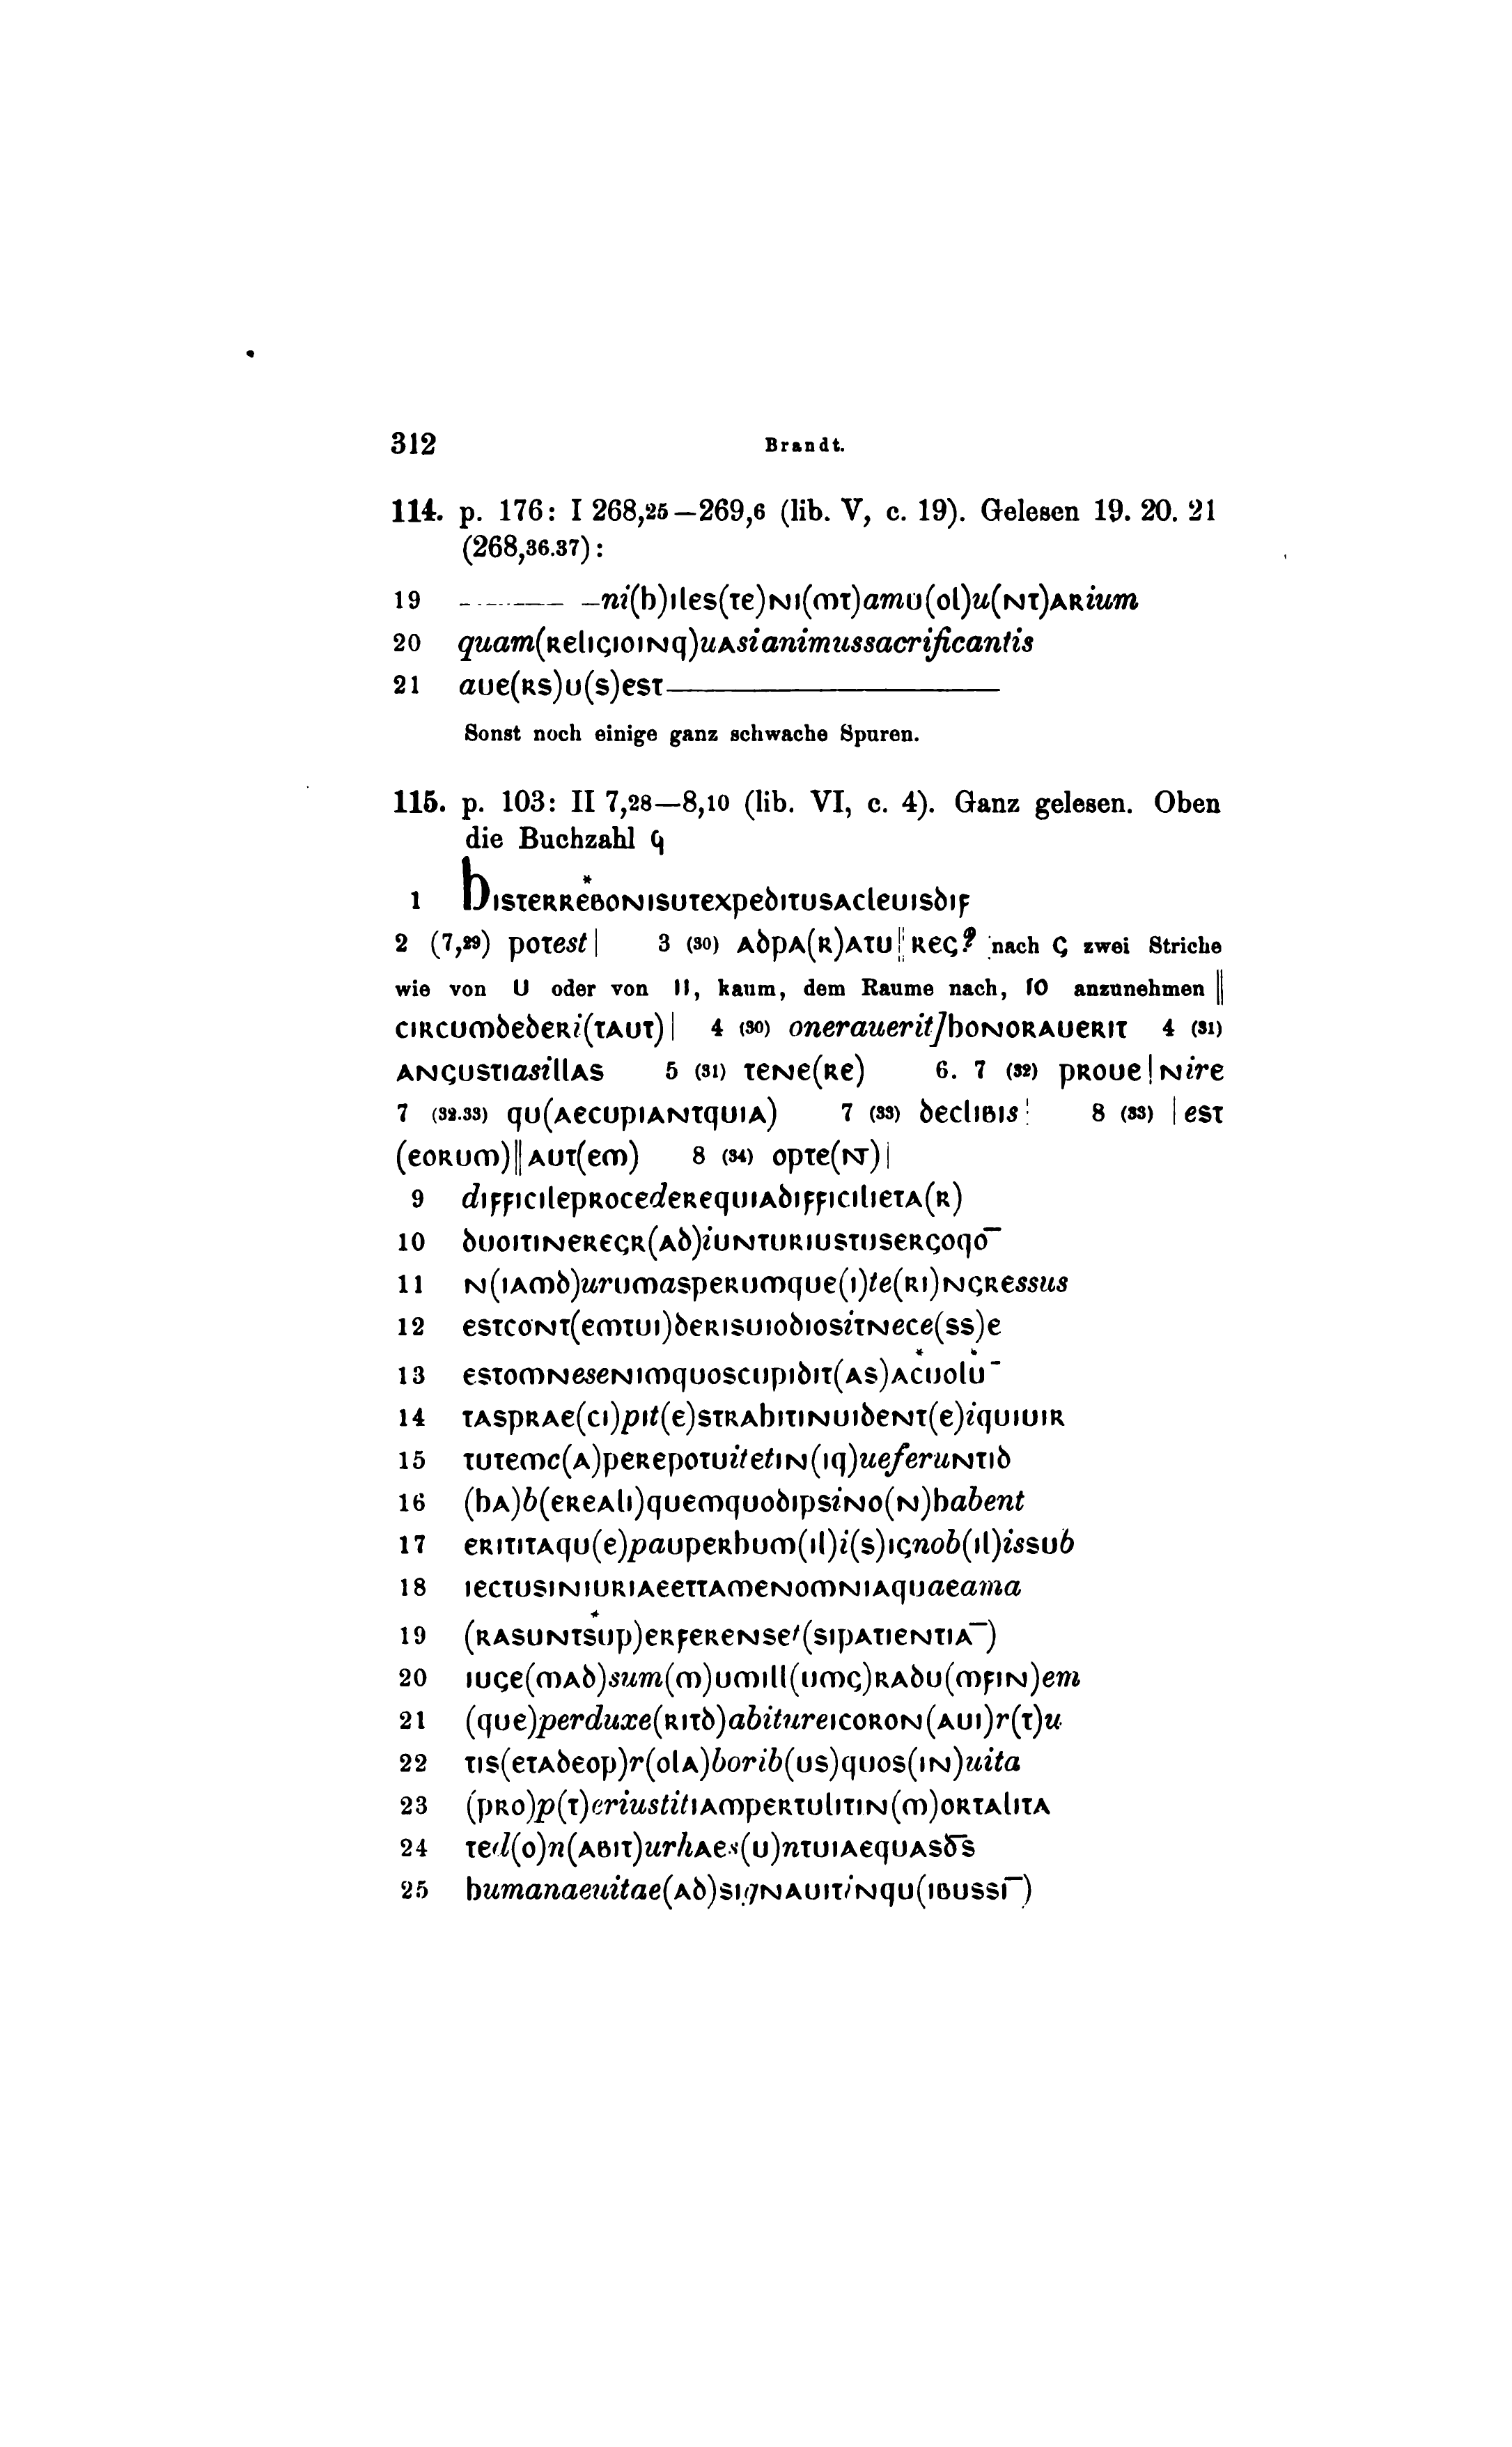 312 Brandt.
114. p. 176: I 268,25—269,6 (lib. V, c. 19). Gelesen 19. 20. 21
(268,36.37):
19 – – – – –ni(h)iles(te)ni(mt)amu(ol)u(nt)arium
20 quam(religioinq)uasianimussacrificantis
21 aue(rs)u(s)est————
Sonst noch einige ganz schwache Spuren.
115. p. 103: II 7,28—8,10 (lib. VI, c. 4). Ganz gelesen. Oben
die Buchzahl ϛ
1 histerrebonisutexpeditusacleuisdif
2 (7,29) potest| 3 (30) adpa(r)atu¦¦reg? nach g zwei Striche
wie von u oder von II, kaum, dem Raume nach, IO anzunehmen ||
circumdederi(taut)| 4 (30) onerauerit]honorauerit 4 (31)
angustiasillas 5 (31) tene(re) 6. 7 (32) proue|nire
7 (32.33) qu(aecupiantquia) 7 (33) declibis¦ 8 (33) |est
(eorum)||aut(em) 8 (34) opte(nt)|
9 difficileprocederequiadifficilieta(r)
10 duoitineregr(ad)iunturiustusergoqō
11 n(iamd)urumasperumque(i)te(ri)ngressus
12 estcont(emtui)derisuiodiositnece(ss)e
13 estomnesenimquoscupidit(as)acuolu¯
14 tasprae(ci)pit(e)strahitinuident(e)iquiuir
15 tutemc(a)perepotuitetin(iq)ueferuntid
16 (ha)b(ereali)quemquodipsino(n)habent
17 erititaqu(e)pauperhum(il)i(s)ignob(il)issub
18 iectusiniuriaeettamenomniaquaeama
19 (rasuntsup)erferenset(sipatientia¯)
20 iuge(mad)sum(m)umill(umg)radu(mfin)em
21 (que)perduxe(ritd)abitureicoron(aui)r(t)u
22 tis(etadeop)r(ola)borib(us)quos(in)uita
23 (pro)p(t)eriustitiampertulitin(m)ortalita
24 ted(o)n(abit)urhaes(u)ntuiaequasd̄s
25 humanaeuitae(ad)signauitinqu(ibussi¯)